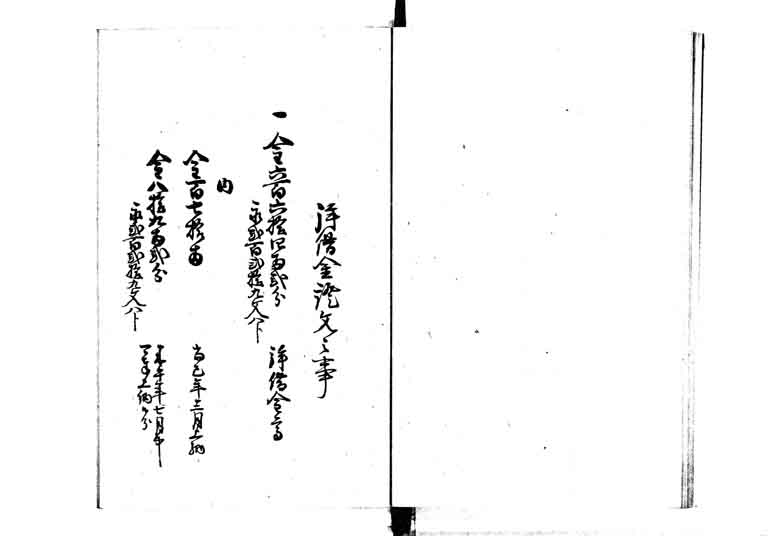 拝借金證文之事
一 金六百六拾四両弐分
永弐百弐拾九文八分
拝借金高
内
金百七拾両
当巳年三月上納
金八拾九両弐分
永弐百弐拾九文八分
来午年七月
上納